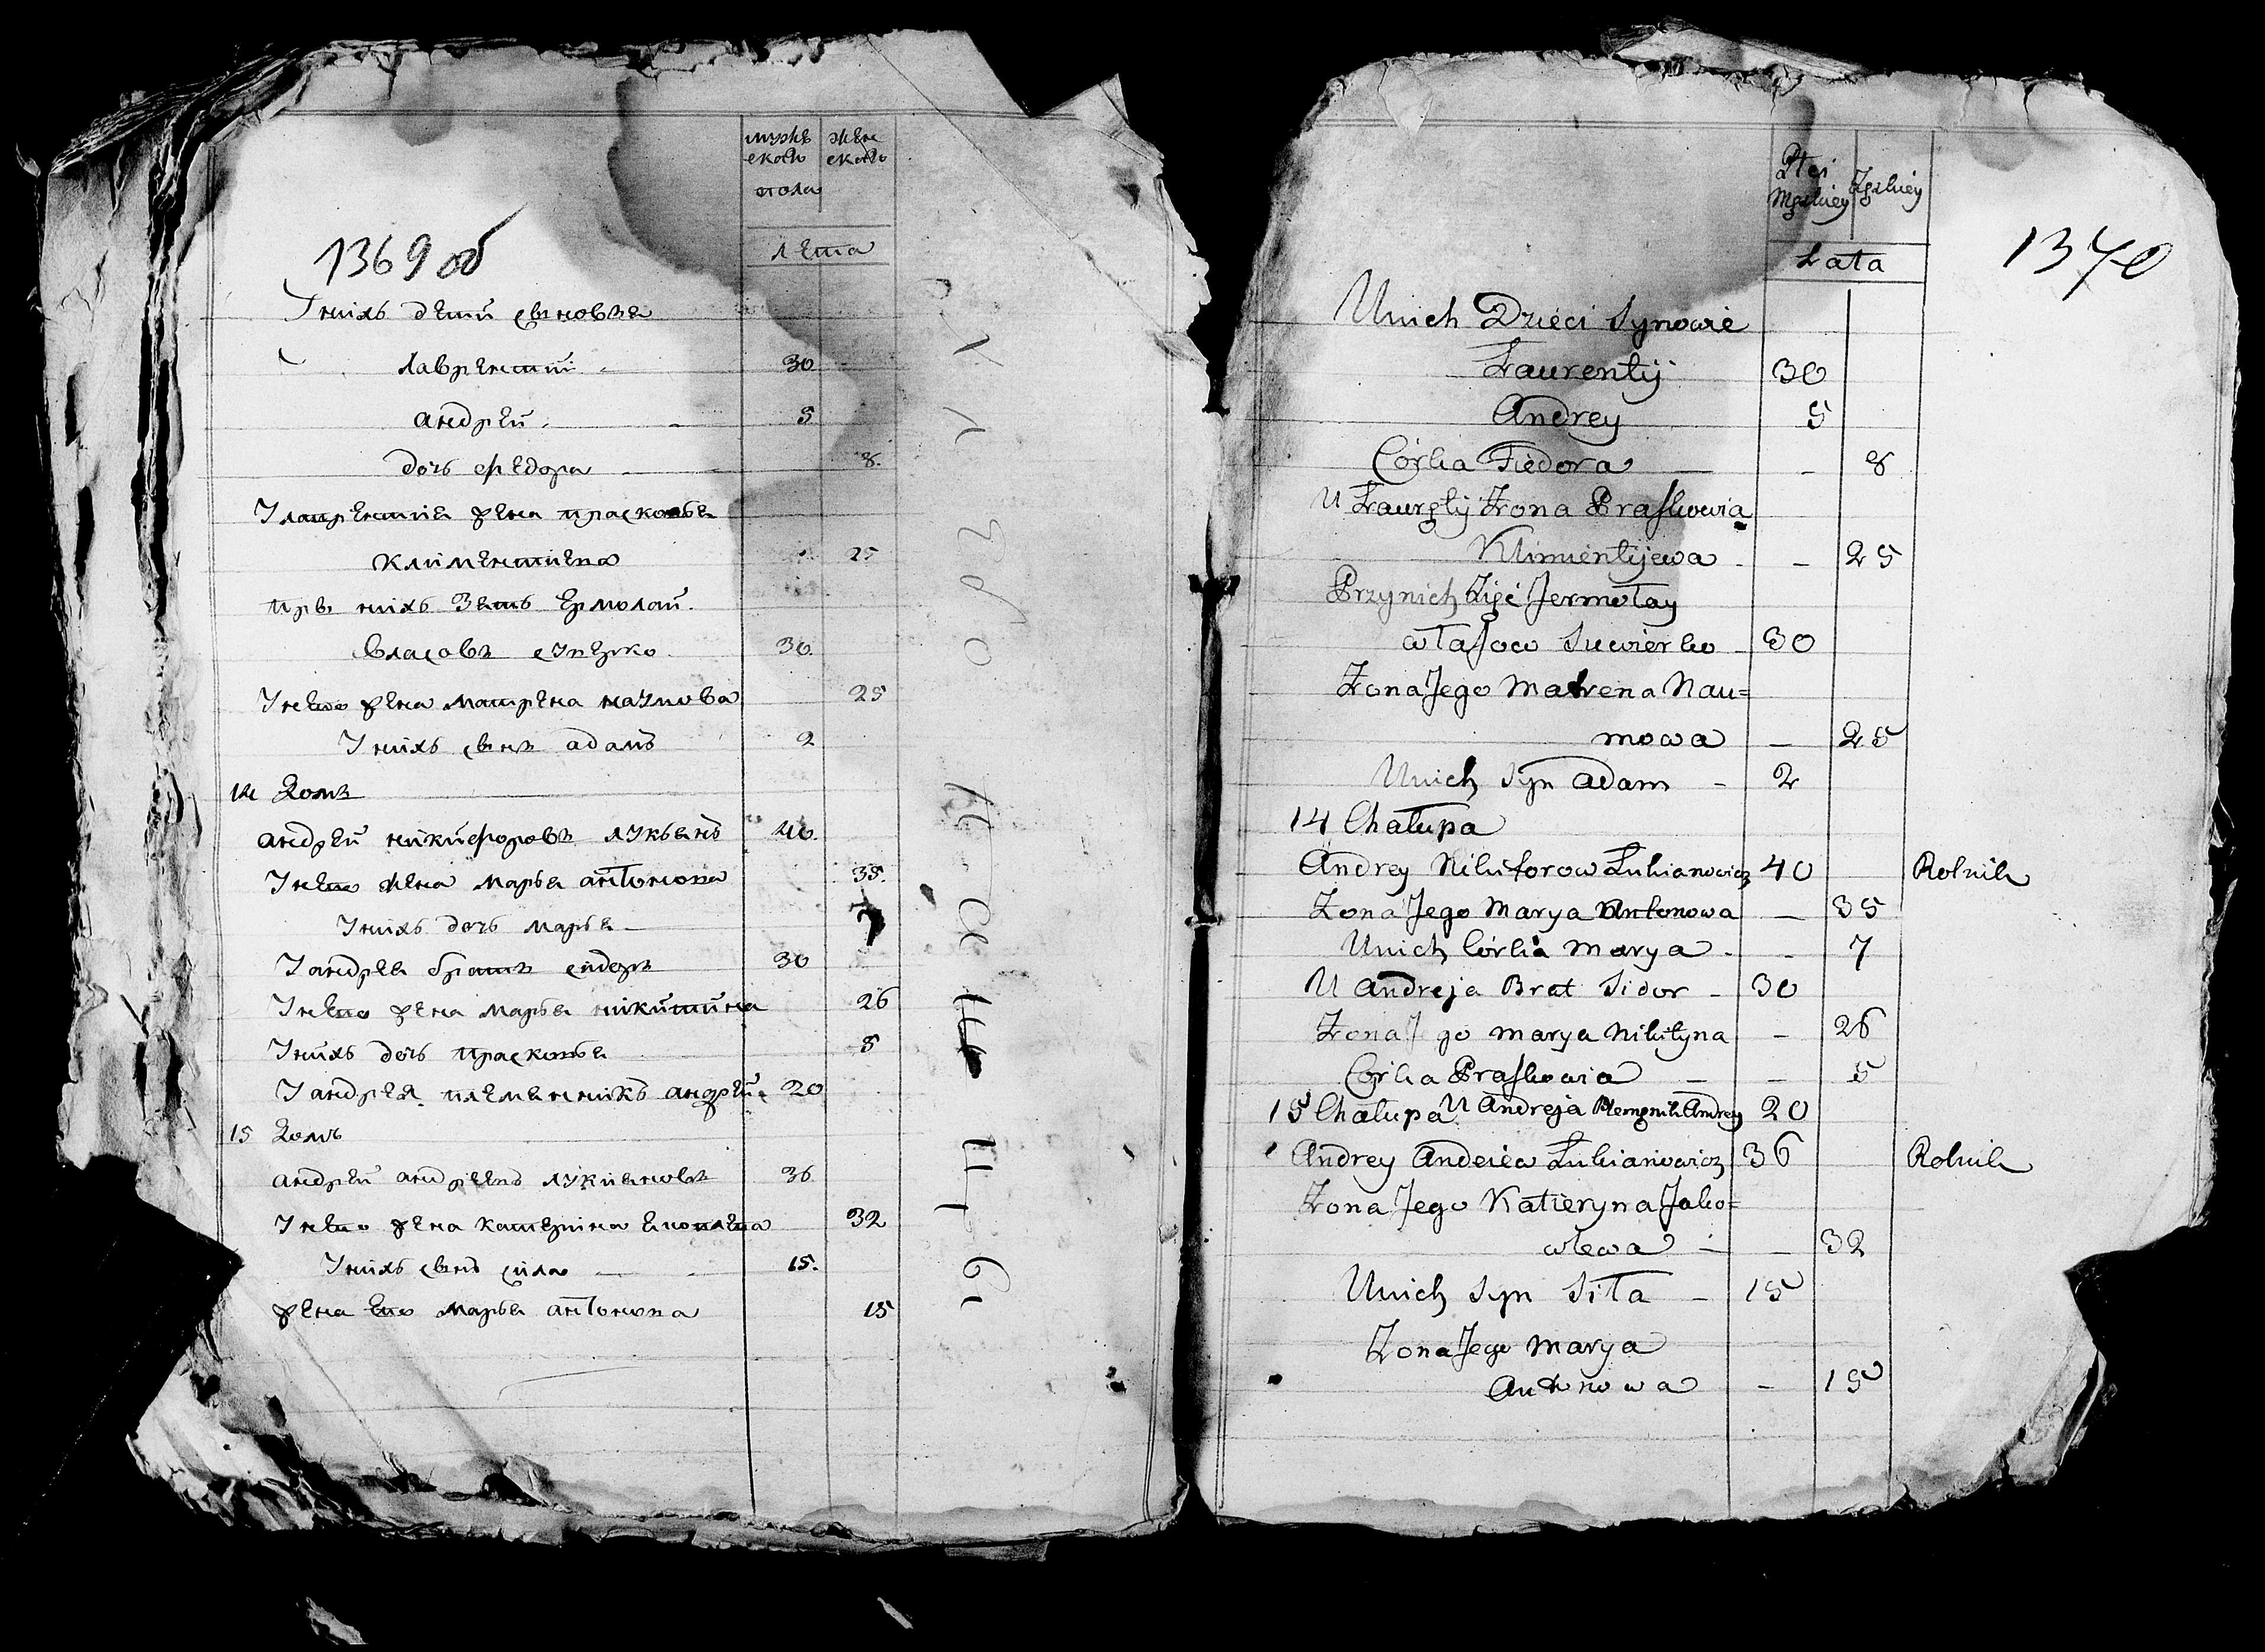 мужс жен
скаго скаго
пола
лета
1369 об
У нихъ дети сыновья
лаврентий 30
андрей 5
дочь федора 8
У лаврентия жена прасковья
климентиева 25
При нихъ Зять Ермолай
власовъ 30
У него жена матрена наумова 25
У нихъ сынъ адамъ 2
14 Домъ
андрей никифоровъ лукьянъ 40
У него жена марья антонова 35
У нихъ дочь марья 7
У андрея братъ сидоръ 30
У него жена марья никитина 26
У нихъ дочь прасковья 5
У андрея племенникъ андрей 20
15 Домъ
андрей андреевъ лукиановъ 36
У него жена катерина 32
У нихъ сынъ сила 15
жена его марья антонова 15
Płci
Męzkiey Żęzkiéy
Lata
1370
U nich Dzieci Synowie
Ławrentÿ 30
Andrey 5
Córka Fiedora — - 8
U Ławrętÿ Żona Praskowia
Klimientijewa - - 25
Przy nich Zięć Jermołay
własow Suwierko - 30
Żona Jego Matrena Nau=
mowa — 25
U nich Syn Adam - 2
14 Chałupa
Andrey Nikiforow Łukianowicz 40 Rolnik
Żona Jego Marya Antonowa — 35
U nich Córka Marya - - 7
U Andreja Brat Sidor - 30
Żona J go Marya Nikityna - 26
Córka Praskowia — - 5
15 Chałupa U Andreja Plemęnik Andrey 20
Andrey Andeiew Łukianowicz 36 Rolnik
Żona Jego Katieryna Jako=
wlewa — - 32
U nich Syn Siła - 15
Żona Jego Marya
Antnowa - 15